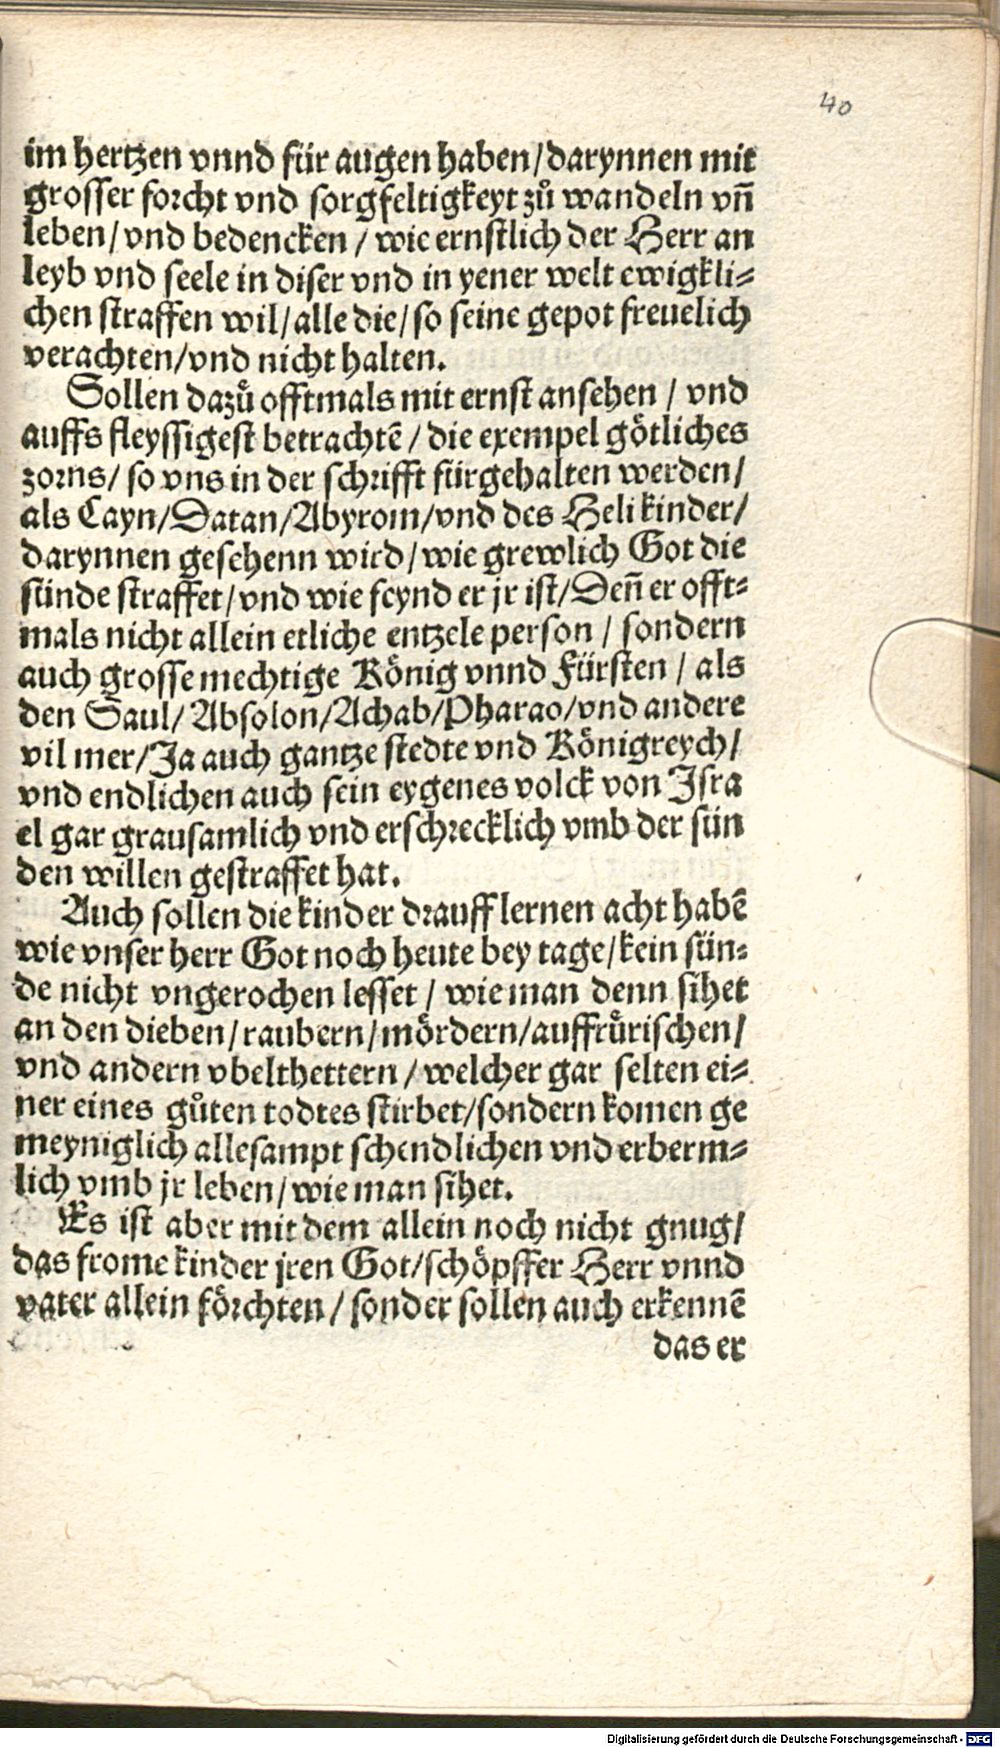 40
im hertzen vnnd für augen haben/darynnen mit
grosser forcht vnd sorgfeltigkeyt zů wandeln vñ
leben/vnd bedencken / wie ernstlich der Herr an
leyb vnd seele in diser vnd in yener welt ewigkli-
chen straffen wil/alle die/so seine gepot freuelich
verachten/vnd nicht halten.
Sollen dazů offtmals mit ernst ansehen / vnd
auffs fleyssigest betrachtē / die exempel götliches
zorns/ so vns in der schrifft fürgehalten werden/
als Cayn/Datan/Abyrom/vnd des Heli kinder/
darynnen gesehenn wird/wie grewlich Got die
sünde straffet/vnd wie feynd er jr ist/Deñ er offt-
mals nicht allein etliche entzele person / sondern
auch grosse mechtige König vnnd Fürsten / als
den Saul/Absolon/Achab/Pharao/vnd andere
vil mer/Ja auch gantze stedte vnd Königreych/
vnd endlichen auch sein eygenes volck von Jsra
el gar grausamlich vnd erschrecklich vmb der sün
den willen gestraffet hat.
Auch sollen die kinder drauff lernen acht habē
wie vnser herr Got noch heute bey tage/kein sün-
de nicht vngerochen lesset / wie man denn sihet
an den dieben/raubern/mördern/auffrůrischen/
vnd andern vbelthettern / welcher gar selten ei-
ner eines gůten todtes stirbet/sondern komen ge
meyniglich allesampt schendlichen vnd erberm-
lich vmb jr leben/wie man sihet.
Es ist aber mit dem allein noch nicht gnug/
das frome kinder jren Got/schöpffer Herr vnnd
vater allein förchten / sonder sollen auch erkennē
das er
Digitalisierung gefördert durch die Deutsche Forschungsgemeinschaft - DFG